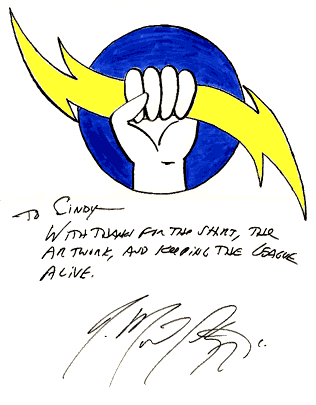 TO CINDY
WITH THANKS FOR THE SHIRT, THE
ARTWORK, AND KEEPING THE LEAGUE
ALIVE.